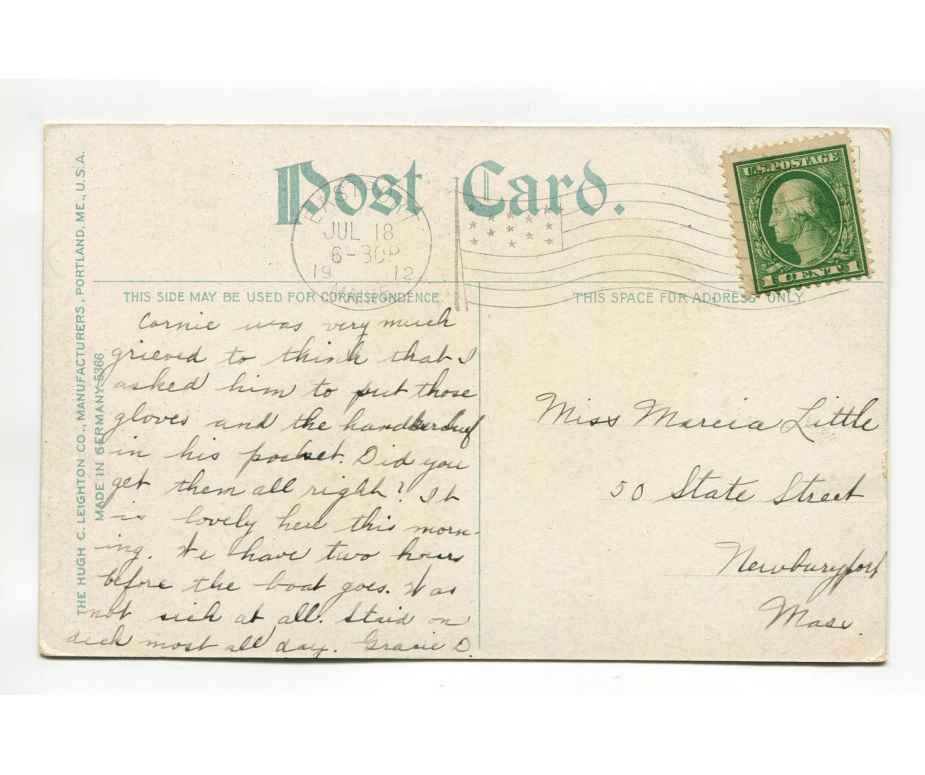 THE HUGH C. LEIGHTON CO., MANUFACTURERS, PORTLAND, ME., U.S.A.
MADE IN GERMANY. 5366
Post Card.
JUL 18
6-30P
19 12
MAINE
U.S. POSTAGE
1 CENT 1
THIS SIDE MAY BE USED FOR CORRESPONDENCE
THIS SPACE FOR ADDRESS ONLY.
Cornie was very much
grieved to think that I
asked him to put those
gloves and the handkerchief
in his pocket. Did you
get them all right? It
is lovely here this morn-
ing. We have two hours
before the boat goes. Was
not sick at all. Staid on
deck most all day. Gracie D.
Miss Marcia Little
50 State Street
Newburyport
Mass.